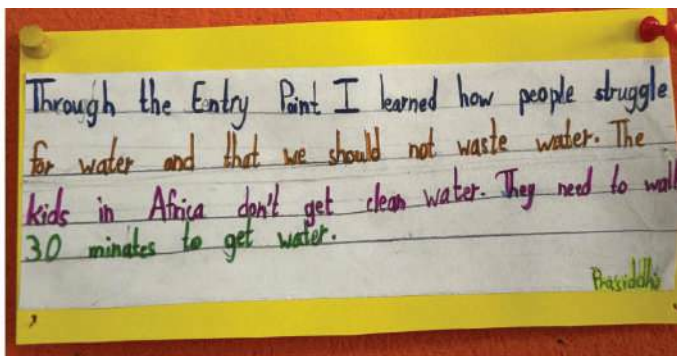 Through the Entry Point I learned how people struggle
for water and that we should not waste water. The
kids in Africa don't get clean water. They need to walk
30 minates to get water.
Prasiddhi